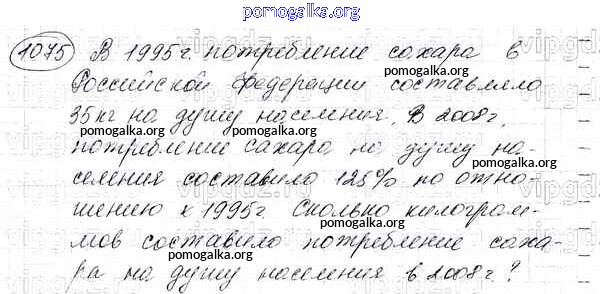 pomogalka.org
1075 В 1995г. потребление сахара в
Российской Федерации составляло
35 кг на душу населения. В 2008г.
потребление сахара на душу на-
селения составило 125% по отно-
шению к 1995г Сколько килограм-
мов составило потребление саха-
ра на душу населения в 2008г.?
pomogalka.org
pomogalka.org
pomogalka.org
pomogalka.org
pomogalka.org
pomogalka.org
pomogalka.org
pomogalka.org